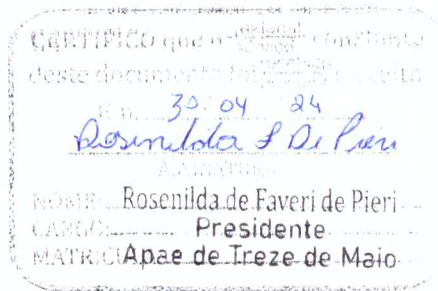 CERTIFICO que o
deste documento foi
Em 30 04 24
Rosenilda F De Pieri
ASSINATURA
NOME: Rosenilda de Faveri de Pieri
CARGO: Presidente
MATRÍCULA Apae de Treze de Maio